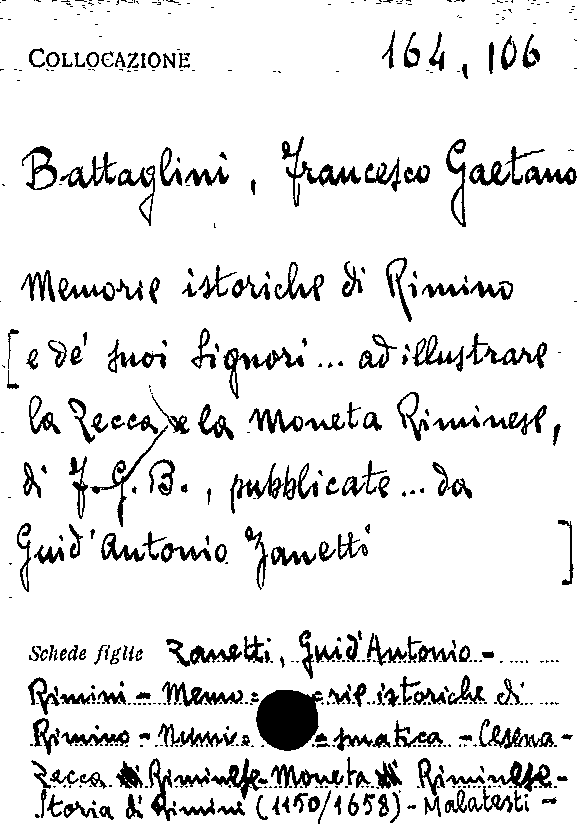 COLLOCAZIONE 164, 106
Battaglini, Francesco Gaetano
Memorie istoriche di Rimino
[e de' suoi Signori... ad illustrare
la Zecca e la Moneta Riminese,
di F. G. B., pubblicate... da
Guid'Antonio Zanetti ]
Schede figlie Zanetti, Guid'Antonio -
Rimini - Memo= =rie istoriche di
Rimino - Numi= =smatica - Cesena -
Zecca Riminese - Moneta Riminese -
Storia di Rimini (1150/1658) - Malatesti -